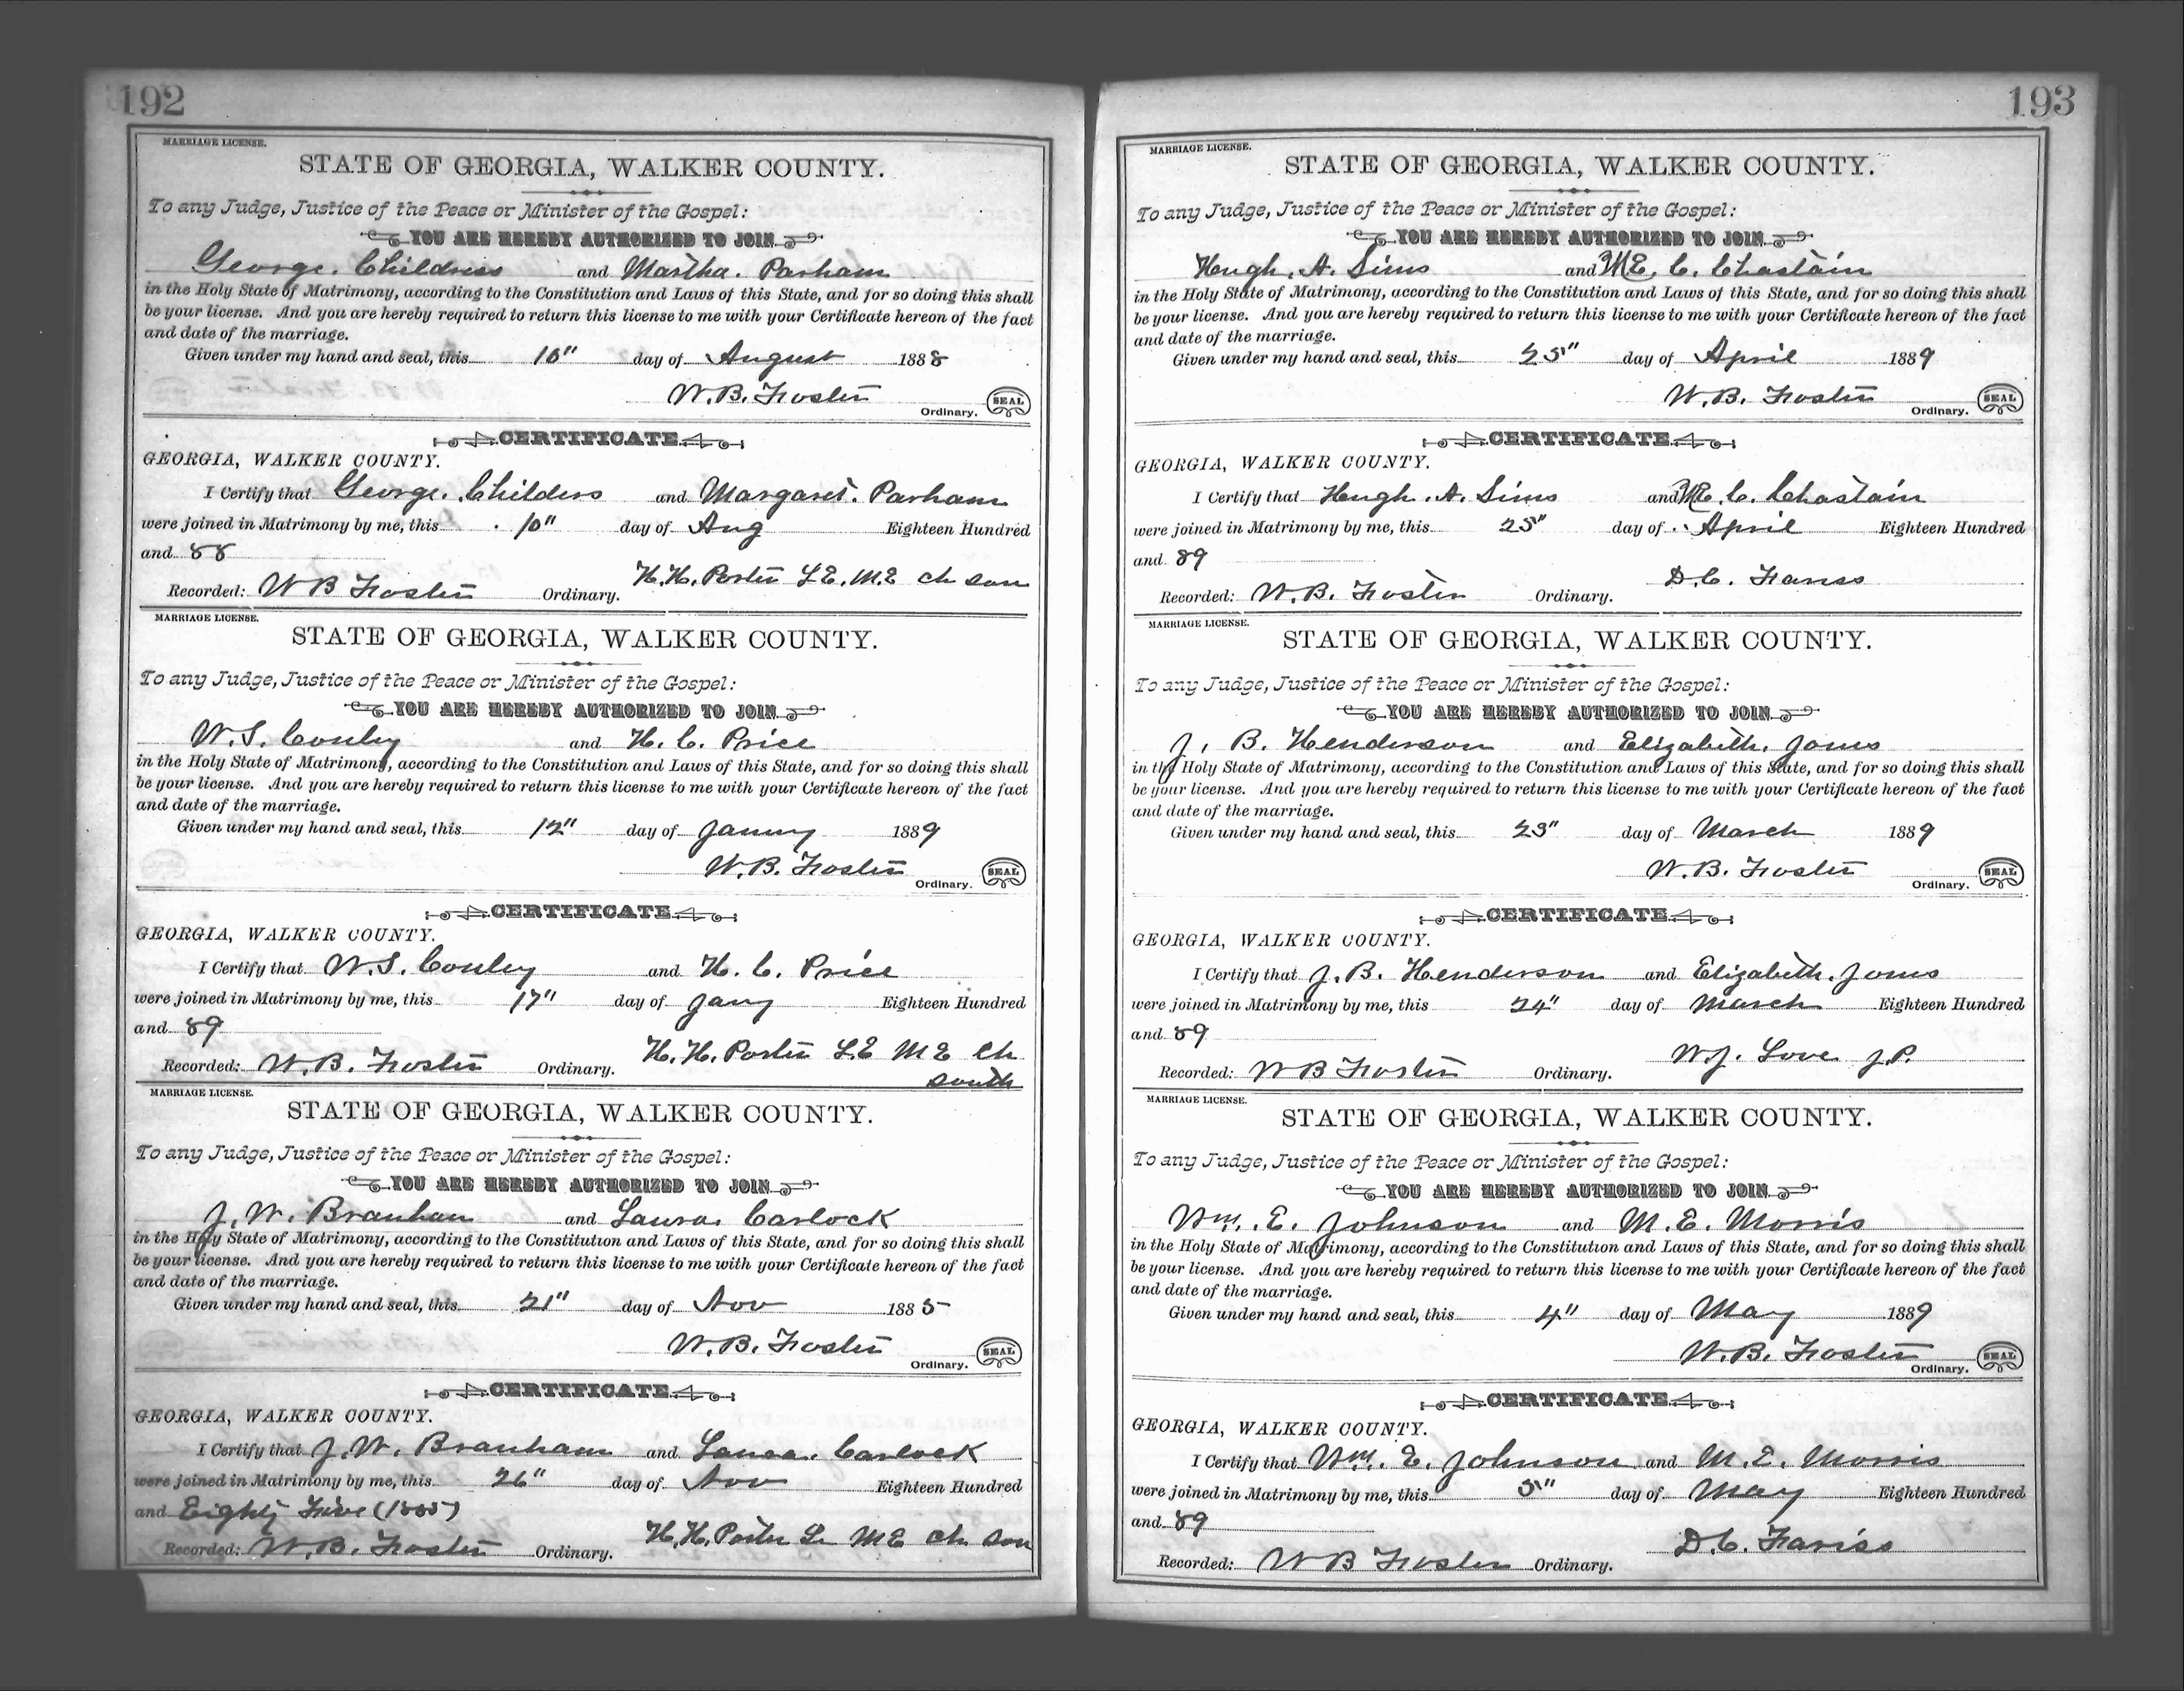 192
MARRIAGE LICENSE.
STATE OF GEORGIA, WALKER COUNTY.
To any Judge, Justice of the Peace or Minister of the Gospel:
YOU ARE HEREBY AUTHORIZED TO JOIN
George. Childress and Martha. Parham
in the Holy State of Matrimony, according to the Constitution and Laws of this State, and for so doing this shall
be your license. And you are hereby required to return this license to me with your Certificate hereon of the fact
and date of the marriage.
Given under my hand and seal, this 10" day of August 1888
W.B. Foster
Ordinary. SEAL
CERTIFICATE
GEORGIA, WALKER COUNTY.
I Certify that George. Childers and Margaret. Parham
were joined in Matrimony by me, this 10" day of Aug Eighteen Hundred
and 88
H.H. Porter L.E. M.E ch sou
Recorded: W B Foster Ordinary.
MARRIAGE LICENSE.
STATE OF GEORGIA, WALKER COUNTY.
To any Judge, Justice of the Peace or Minister of the Gospel:
YOU ARE HEREBY AUTHORIZED TO JOIN
W.S. Conley and H. C. Price
in the Holy State of Matrimony, according to the Constitution and Laws of this State, and for so doing this shall
be your license. And you are hereby required to return this license to me with your Certificate hereon of the fact
and date of the marriage.
Given under my hand and seal, this 12" day of January 1889
W.B. Foster
Ordinary. SEAL
CERTIFICATE
GEORGIA, WALKER COUNTY.
I Certify that W.S. Conley and H. C. Price
were joined in Matrimony by me, this 17" day of Jany Eighteen Hundred
and 89
H.H. Porter L.E M E Ch
Recorded: W.B. Foster Ordinary.
south
MARRIAGE LICENSE.
STATE OF GEORGIA, WALKER COUNTY.
To any Judge, Justice of the Peace or Minister of the Gospel:
YOU ARE HEREBY AUTHORIZED TO JOIN
J. W. Branham and Laura. Carlock
in the Holy State of Matrimony, according to the Constitution and Laws of this State, and for so doing this shall
be your license. And you are hereby required to return this license to me with your Certificate hereon of the fact
and date of the marriage.
Given under my hand and seal, this 21" day of Nov 1885
W.B. Foster
Ordinary. SEAL
CERTIFICATE
GEORGIA, WALKER COUNTY.
I Certify that J.W. Branham and Laura. Carlock
were joined in Matrimony by me, this 26" day of Nov Eighteen Hundred
and Eighty Five (1885)
H.H. Porter L. M E Ch Sou
Recorded: W.B. Foster Ordinary.
193
MARRIAGE LICENSE.
STATE OF GEORGIA, WALKER COUNTY.
To any Judge, Justice of the Peace or Minister of the Gospel:
YOU ARE HEREBY AUTHORIZED TO JOIN
Hugh. A. Sims and M.E. C. Chastain
in the Holy State of Matrimony, according to the Constitution and Laws of this State, and for so doing this shall
be your license. And you are hereby required to return this license to me with your Certificate hereon of the fact
and date of the marriage.
Given under my hand and seal, this 25" day of April 1889
W.B. Foster
Ordinary. SEAL
CERTIFICATE
GEORGIA, WALKER COUNTY.
I Certify that Hugh. A. Sims and M.E. C. Chastain
were joined in Matrimony by me, this 25" day of April Eighteen Hundred
and 89
D.C. Fariss
Recorded: W.B. Foster Ordinary.
MARRIAGE LICENSE.
STATE OF GEORGIA, WALKER COUNTY.
To any Judge, Justice of the Peace or Minister of the Gospel:
YOU ARE HEREBY AUTHORIZED TO JOIN
J. B. Henderson and Elizabeth. Jones
in the Holy State of Matrimony, according to the Constitution and Laws of this State, and for so doing this shall
be your license. And you are hereby required to return this license to me with your Certificate hereon of the fact
and date of the marriage.
Given under my hand and seal, this 23" day of March 1889
W.B. Foster
Ordinary. SEAL
CERTIFICATE
GEORGIA, WALKER COUNTY.
I Certify that J.B. Henderson and Elizabeth. Jones
were joined in Matrimony by me, this 24" day of March Eighteen Hundred
and 89
W.J. Love J.P.
Recorded: W B Foster Ordinary.
MARRIAGE LICENSE.
STATE OF GEORGIA, WALKER COUNTY.
To any Judge, Justice of the Peace or Minister of the Gospel:
YOU ARE HEREBY AUTHORIZED TO JOIN
Wm. E. Johnson and M. E. Morris
in the Holy State of Matrimony, according to the Constitution and Laws of this State, and for so doing this shall
be your license. And you are hereby required to return this license to me with your Certificate hereon of the fact
and date of the marriage.
Given under my hand and seal, this 4" day of May 1889
W.B. Foster
Ordinary. SEAL
CERTIFICATE
GEORGIA, WALKER COUNTY.
I Certify that Wm. E. Johnson and M.E. Morris
were joined in Matrimony by me, this 5" day of May Eighteen Hundred
and 89
D.C. Fariss
Recorded: W B Foster Ordinary.